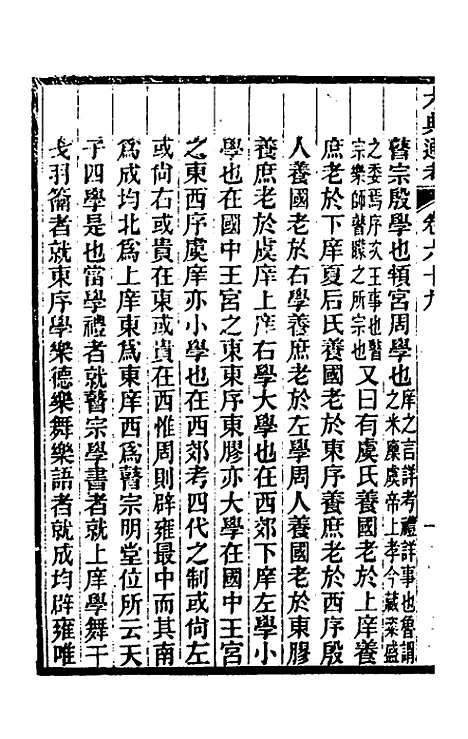 六典通考 卷六十九
瞽宗殷學也頖宮周學也庠之言詳考禮詳事也魯謂之米廩虞帝上孝今藏粢盛
之委焉序次王事也瞽宗樂師瞽矇之所宗也又曰有虞氏養國老於上庠養
庶老於下庠夏后氏養國老於東序養庶老於西序殷
人養國老於右學養庶老於左學周人養國老於東膠
養庶老於虞庠上庠右學大學也在西郊下庠左學小
學也在國中王宮之東東序東膠亦大學在國中王宮
之東西序虞庠亦小學也在西郊考四代之制或尙左
或尙右或貴在東或貴在西惟周則辟雍最中而其南
爲成均北爲上庠東爲東庠西爲瞽宗明堂位所云天
子四學是也當學禮者就瞽宗學書者就上庠學舞干
戈羽籥者就東序學樂德樂舞樂語者就成均辟雍唯